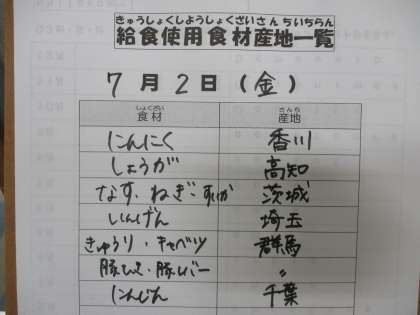 きゅうしょくしようしょくざいさんちいちらん
給食使用食材産地一覧
7月2日(金)
しょくざい さんち
食材 産地
にんにく 香川
しょうが 高知
なす・ねぎ・すいか 茨城
いんげん 埼玉
きゅうり・キャベツ 群馬
豚ひき・豚レバー 〃
にんじん 千葉